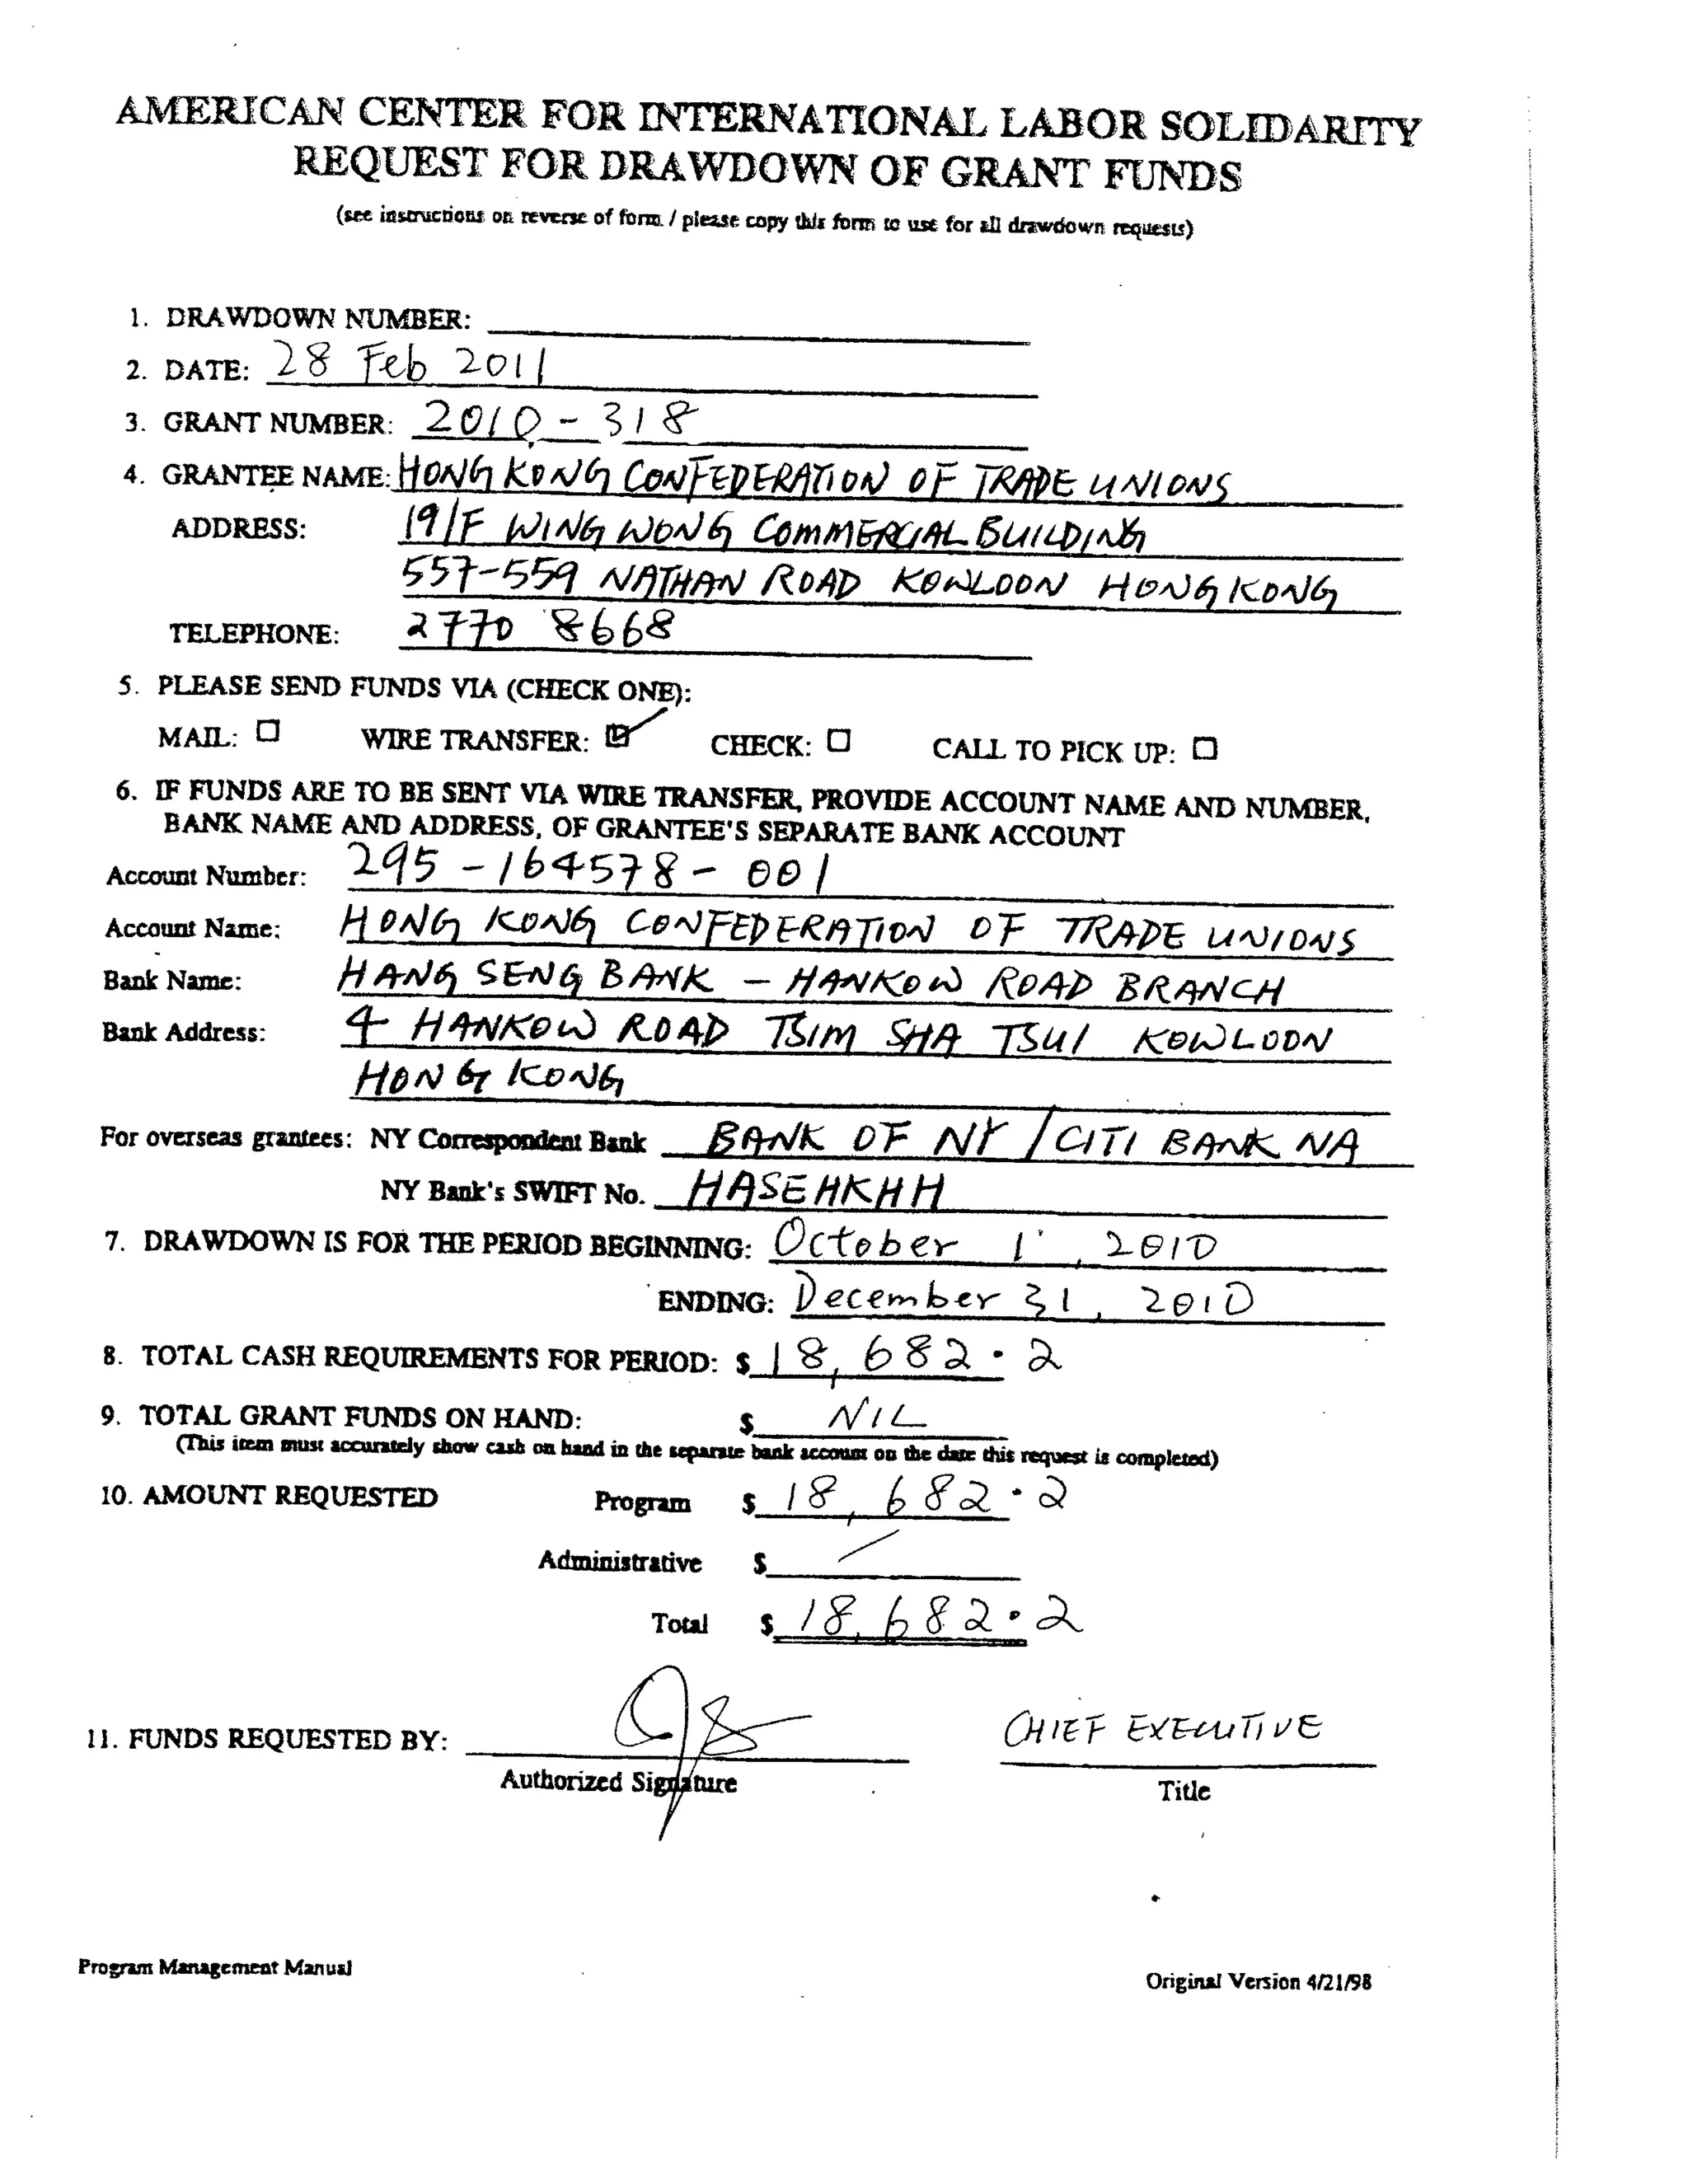 AMERICAN CENTER FOR INTERNATIONAL LABOR SOLIDARITY
REQUEST FOR DRAWDOWN OF GRANT FUNDS
(see instructions on reverse of form / please copy this form to use for all drawdown requests)
1. DRAWDOWN NUMBER:
2. DATE: 28 Feb 2011
3. GRANT NUMBER: 2010 - 318
4. GRANTEE NAME: HONG KONG CONFEDERATION OF TRADE UNIONS
ADDRESS: 19/F WING WONG COMMERCIAL BUILDING
557-559 NATHAN ROAD KOWLOON HONG KONG
TELEPHONE: 2770 8668
5. PLEASE SEND FUNDS VIA (CHECK ONE):
MAIL: ☐ WIRE TRANSFER: ☑ CHECK: ☐ CALL TO PICK UP: ☐
6. IF FUNDS ARE TO BE SENT VIA WIRE TRANSFER, PROVIDE ACCOUNT NAME AND NUMBER,
BANK NAME AND ADDRESS, OF GRANTEE'S SEPARATE BANK ACCOUNT
Account Number: 295 - 164578 - 001
Account Name: HONG KONG CONFEDERATION OF TRADE UNIONS
Bank Name: HANG SENG BANK - HANKOW ROAD BRANCH
Bank Address: 4 HANKOW ROAD TSIM SHA TSUI KOWLOON
HONG KONG
For overseas grantees: NY Correspondent Bank BANK OF NY / CITI BANK NA
NY Bank's SWIFT No. HASEHKHH
7. DRAWDOWN IS FOR THE PERIOD BEGINNING: October 1, 2010
ENDING: December 31, 2010
8. TOTAL CASH REQUIREMENTS FOR PERIOD: $ 18,682.2
9. TOTAL GRANT FUNDS ON HAND: $ NIL
(This item must accurately show cash on hand in the separate bank account on the date this request is completed)
10. AMOUNT REQUESTED Program $ 18,682.2
Administrative $ /
Total $ 18,682.2
11. FUNDS REQUESTED BY: CHIEF EXECUTIVE
Authorized Signature Title
Program Management Manual Original Version 4/21/98